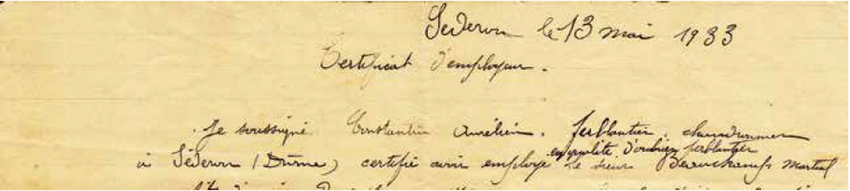 Séderon le 13 mai 1933
Certificat d'employeur.
Je soussigné Constantin Aurélien. ferblantier, chaudronnier
en qualité d'ouvrier ferblantier
à Séderon (Drôme) certifie avoir employé le sieur Beauchamp Martial